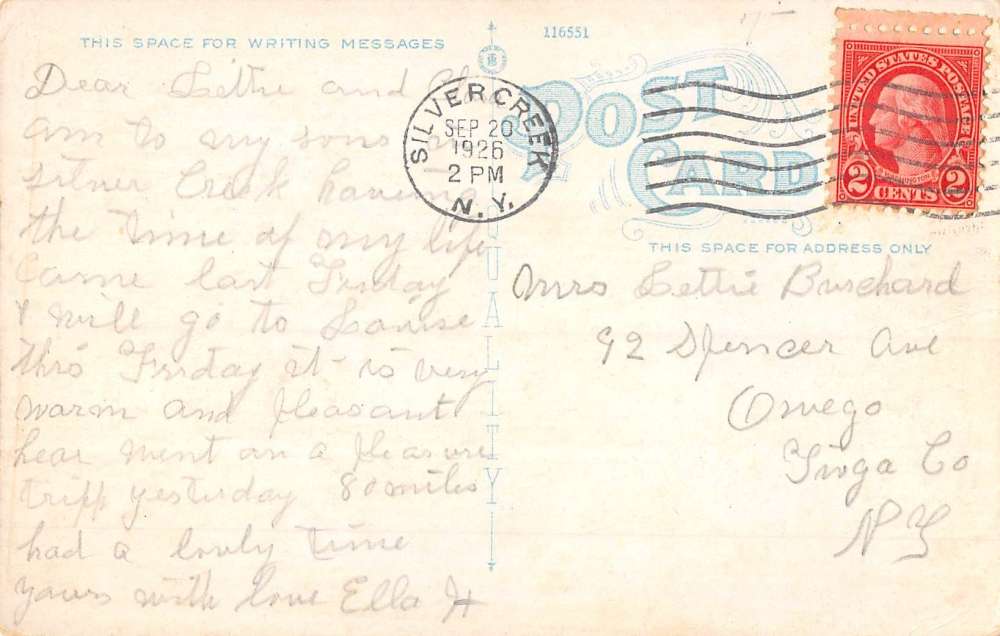 THIS SPACE FOR WRITING MESSAGES
116551
POST CARD
THIS SPACE FOR ADDRESS ONLY
QUALITY
SILVER CREEK
SEP 20
1926
2 PM
N.Y.
UNITED STATES POSTAGE
WASHINGTON
2 CENTS 2
Dear Lettie and
am to my sons
Silver Creek having
the time of my life
Came last Friday
& will go to Louise
this Friday it is very
warm and pleasant
hear went on a pleasure
tripp yesterday 80 miles
had a lovly time
yours with love Ella H
Mrs Lettie Burchard
92 Spencer Ave
Owego
Tioga Co
NY